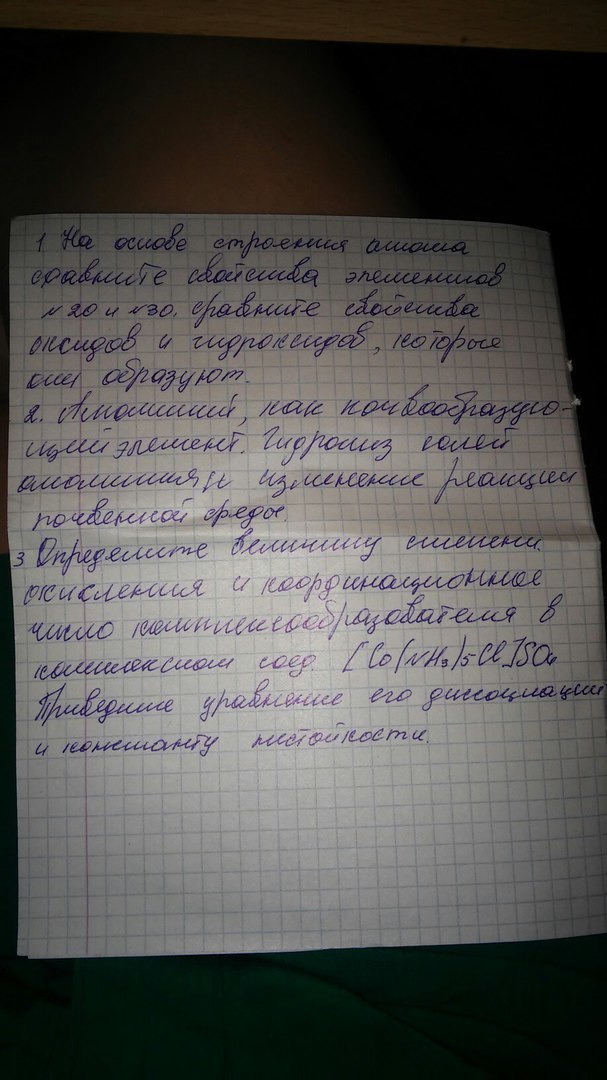 1 На основе строения атома
сравните свойства элементов
№20 и №30. сравните свойства
оксидов и гидроксидов, которые
они образуют.
2. Алюминий, как почвообразую-
щий элемент. Гидролиз солей
алюминия и изменение реакции
почвенной среды.
3 Определите величину степени
окисления и координационное
число комплексообразователя в
комплексном соед. [Co(NH₃)₅Cl]SO₄
Приведите уравнение его диссоциации
и константу нестойкости.